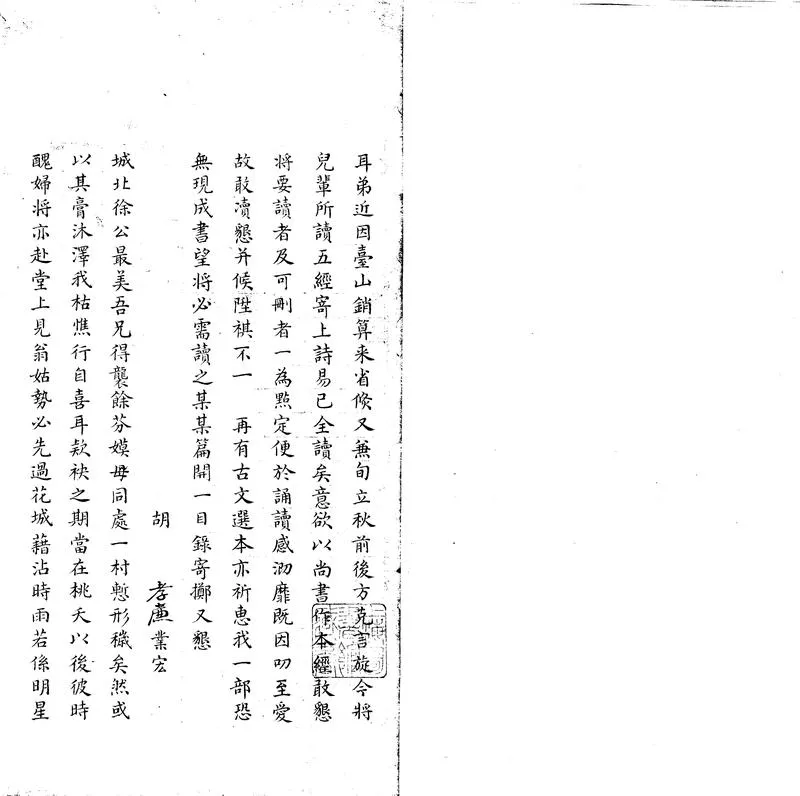 耳弟近因臺山銷算来省倏又兼旬立秋前後方克言旋今將
兒輩所讀五經寄上詩易已全讀矣意欲以尚書作本經敢懇
將要讀者及可刪者一為點定便於誦讀感泐靡既因叨至愛
故敢凟懇并候陞祺不一　再有古文選本亦祈惠我一部恐
無現成書望將必需讀之某某篇開一目錄寄擲又懇
胡　孝廉業宏
城北徐公最美吾兄得襲餘芬嫫毋同處一村慙形穢矣然或
以其膏沐澤我枯憔行自喜耳款袂之期當在桃夭以後彼時
醜婦將亦赴堂上見翁姑勢必先過花城藉沾時雨若係明星